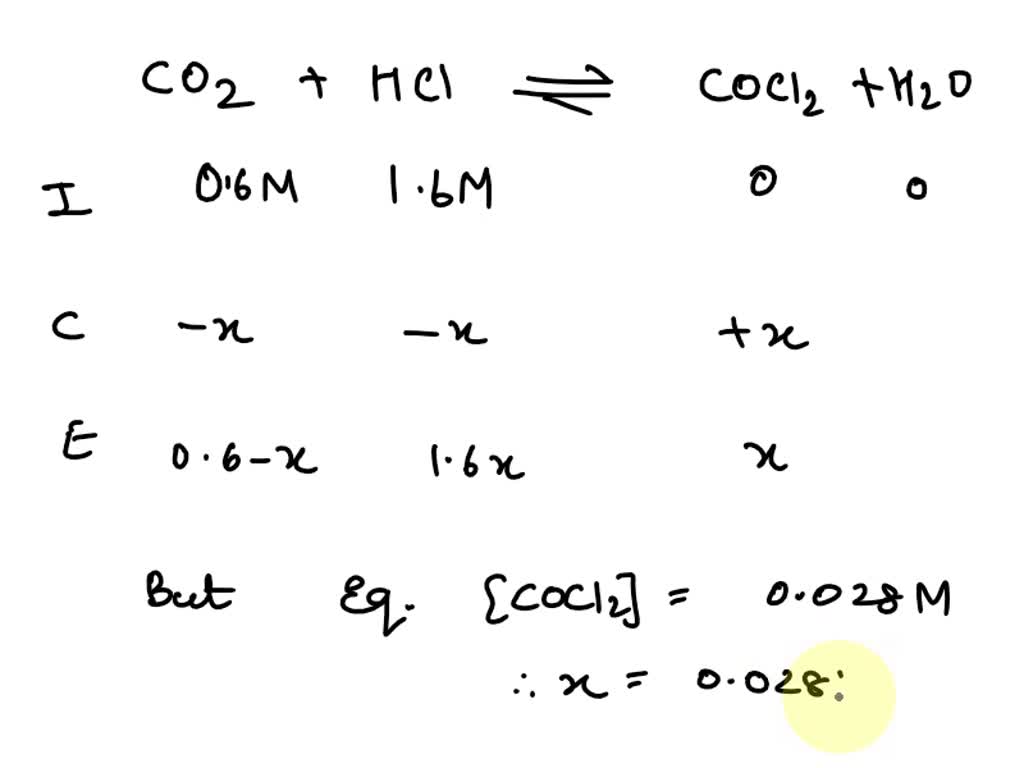 CO2 + HCl ⇌ COCl2 + H2O
I 0.6M 1.6M 0 0
C -x -x +x
E 0.6-x 1.6x x
But Eq. [COCl2] = 0.028M
∴ x = 0.028